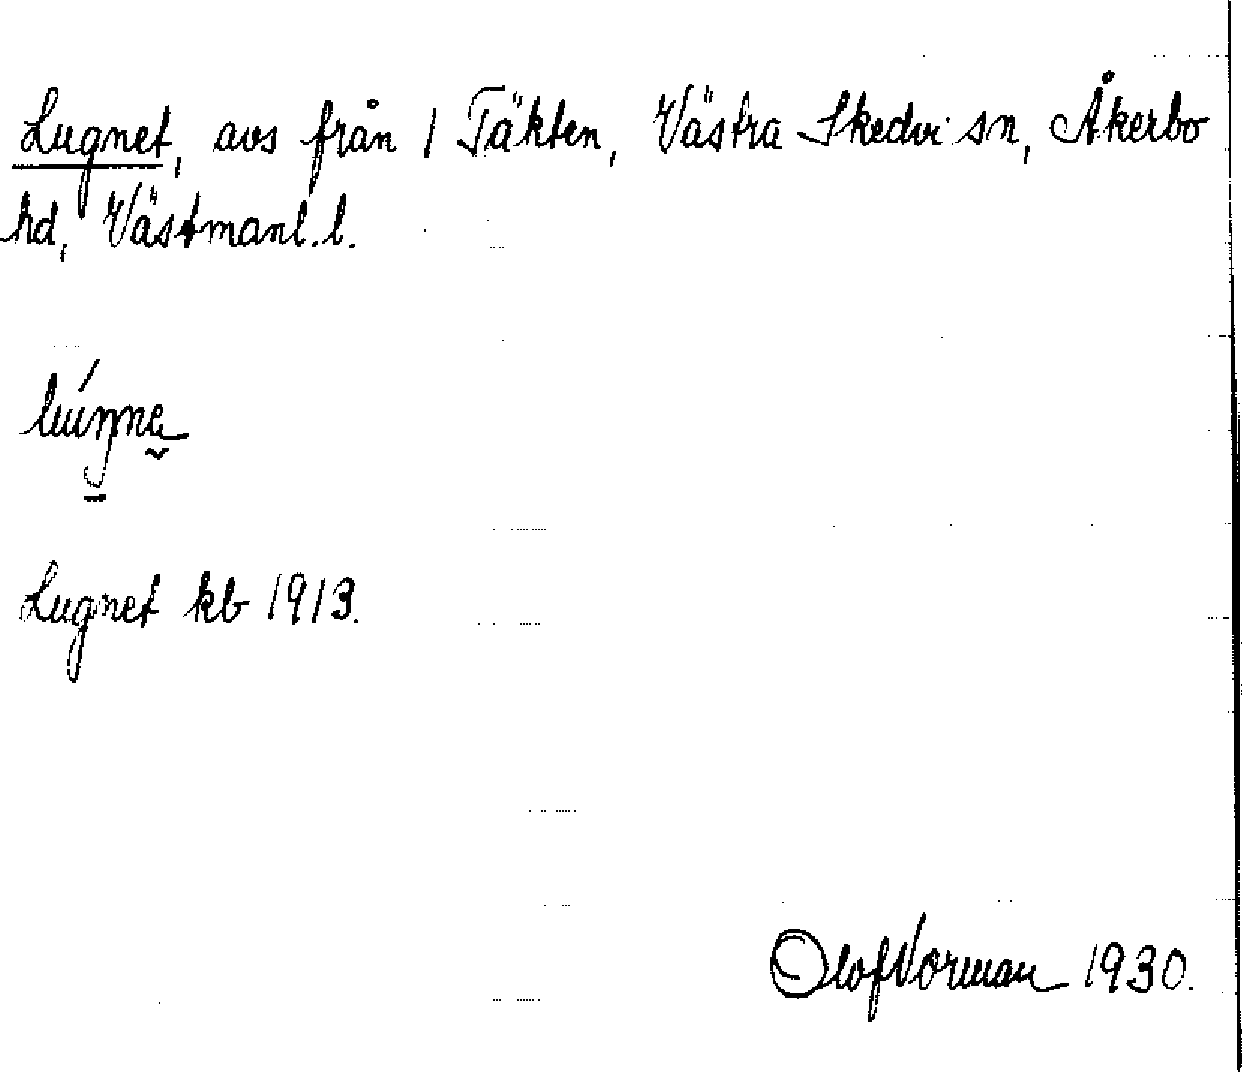 Lugnet, avs från 1 Täkten, Västra Skedvi sn, Åkerbo
hd, Västmanl. l.
Lugnet kb 1913.
Olof Norman 1930.